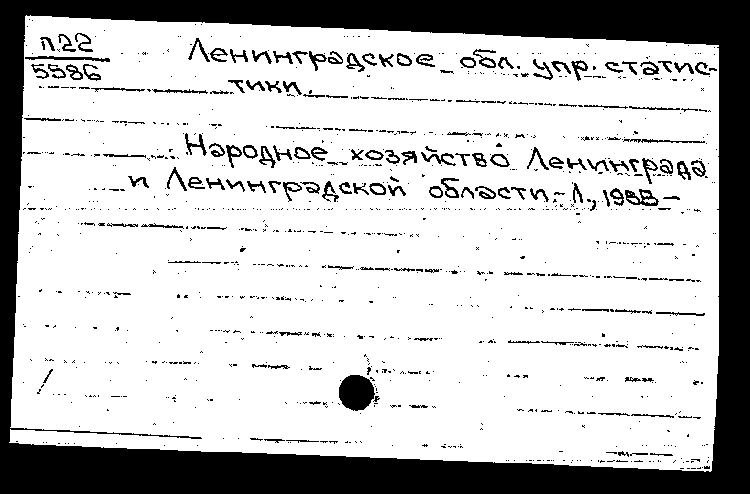 п.22
5586
Ленинградское обл. упр. статис-
тики.
Народное хозяйство Ленинграда
и Ленинградской области.- Л.,